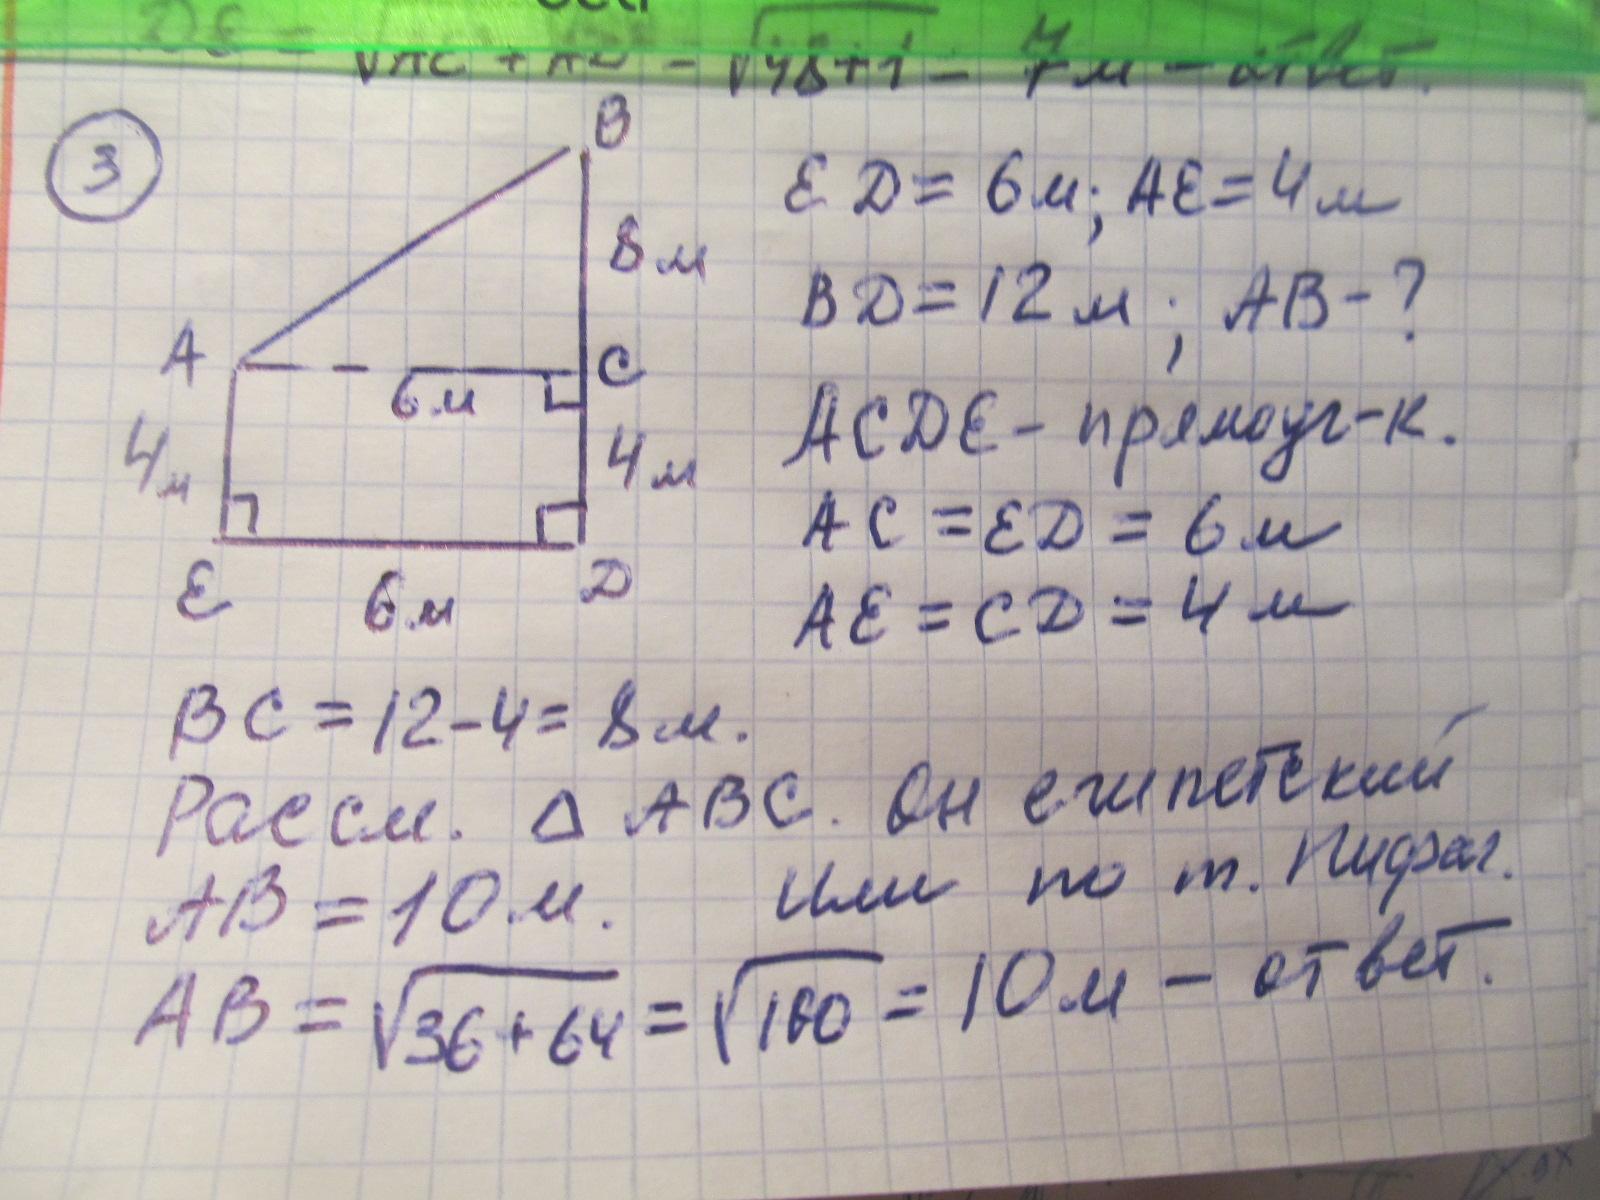 DE = √AC² + AD² = √48+1 = 7м – ответ.
3
B
8м
A
C
6м
4м
4м
E
D
6м
ED = 6м; AE = 4м
BD = 12м; AB - ?
ACDE – прямоуг-к.
AC = ED = 6м
AE = CD = 4м
BC = 12-4 = 8м.
Рассм. Δ ABC. Он египетский
AB = 10м. Или по т. Пифаг.
AB = √36+64 = √100 = 10м – ответ.